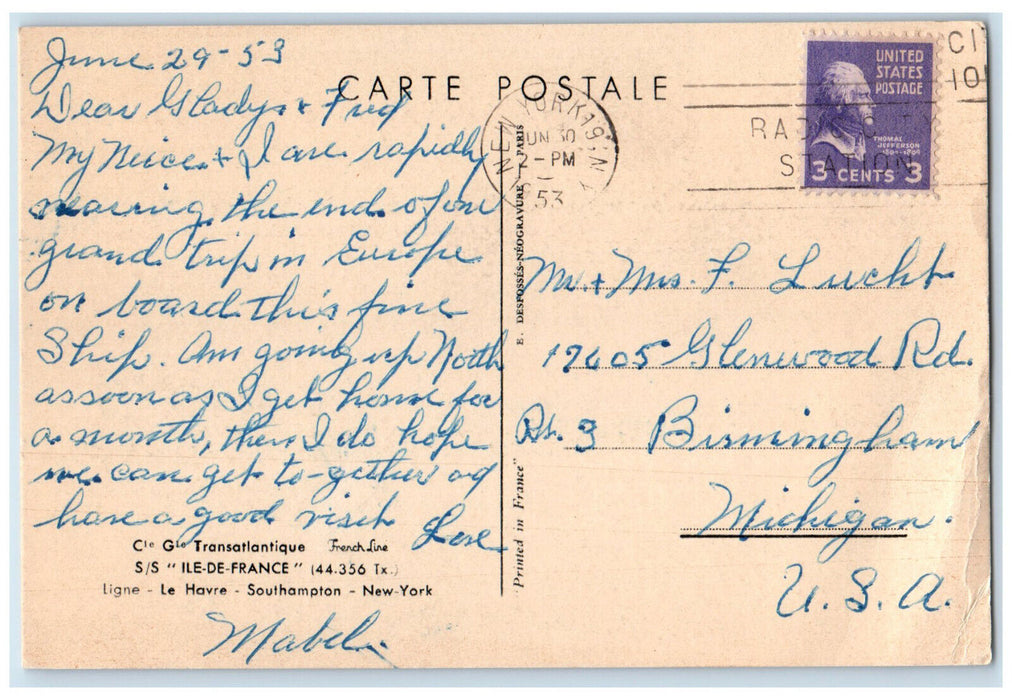 June 29-53
CARTE POSTALE
Dear Gladys & Fred
My Neice & I are rapidly
nearing the end of our
grand trip in Europe
on board this fine
Ship. Am going up North
as soon as I get home for
a month, then I do hope
we can get to-gether and
have a good visit
Love
Mabel.
Cie Gle Transatlantique French Line
S/S " ILE-DE-FRANCE " (44.356 Tx.)
Ligne - Le Havre - Southampton - New-York
E. DESFOSSÉS-NÉOGRAVURE - PARIS
"Printed in France"
NEW YORK 19, N.Y.
JUN 30
2 - PM
53
STATION
UNITED
STATES
POSTAGE
THOMAS
JEFFERSON
1801-1809
3 CENTS 3
Mr. & Mrs. F. Lucht
17605 Glenwood Rd.
Rt. 3 Birmingham
Michigan.
U. S. A.